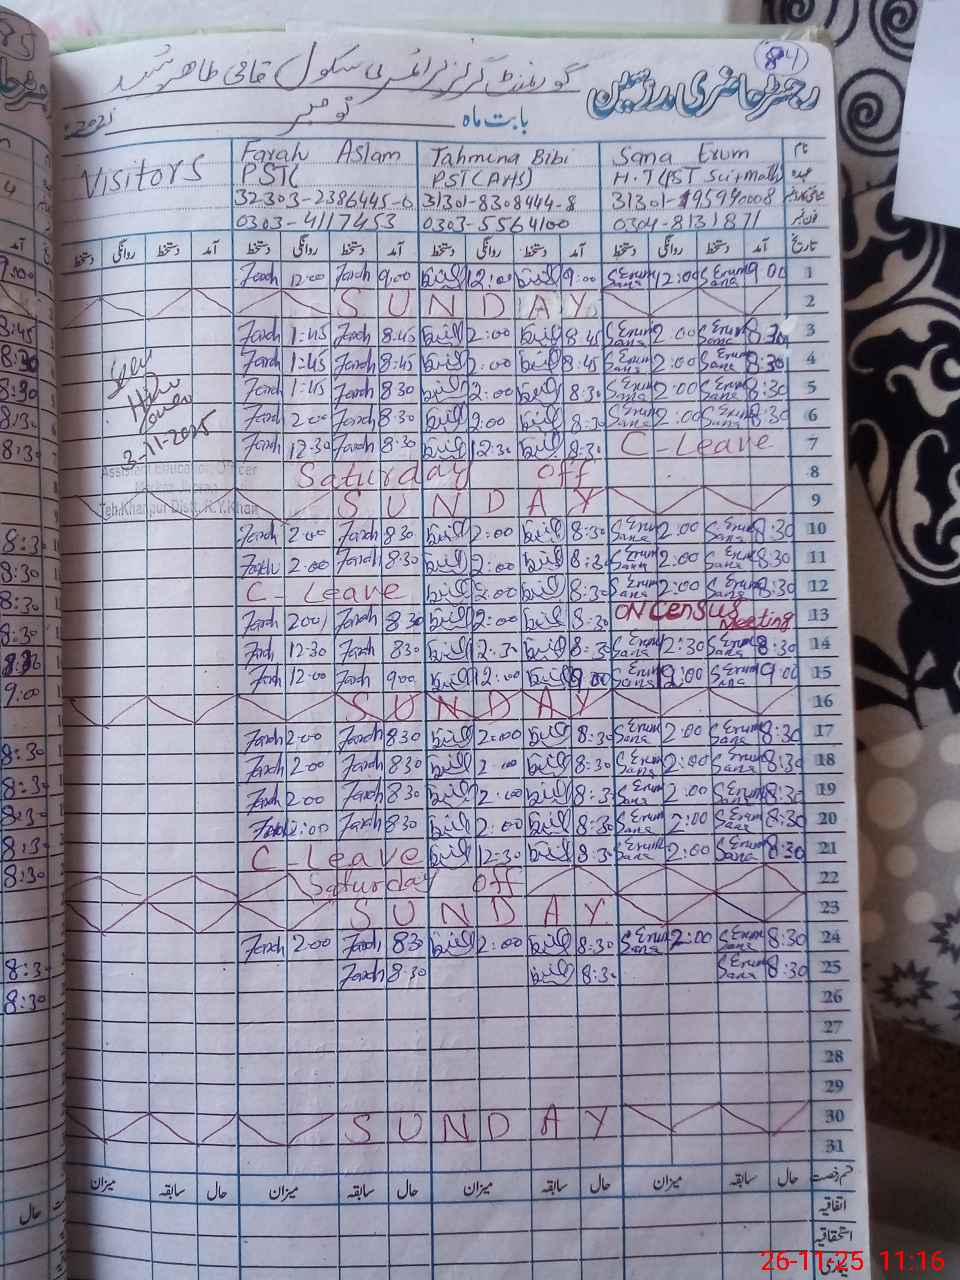 841
رجسٹر حاضری مدرسین
گورنمنٹ گرلز پرائمری سکول قاضی طاہر شہید
بابت ماہ نومبر 2025ء
نام Sana Erum Tahmina Bibi Farah Aslam Visitors
عہدہ H.T (PST Sci+math) PST (AHS) PST(
31301-195940008 31301-8308444-8 32303-2386445-0
فون نمبر 0304-8131871 0303-5564100 0303-4117453
تاریخ آمد دستخط روانگی دستخط آمد دستخط روانگی دستخط آمد دستخط روانگی دستخط آمد دستخط روانگی دستخط
1 9:00 S Erum Sana 12:00 S Erum Sana 9:00 12:00 9:00 Farah 12:00 Farah
2 SUNDAY
3 8:30 S Erum Sana 2:00 S Erum Sana 8:45 2:00 8:45 Farah 1:45 Farah
4 8:30 S Erum Sana 2:00 S Erum Sana 8:45 2:00 8:45 Farah 1:45 Farah
5 8:30 S Erum Sana 2:00 S Erum Sana 8:30 2:00 8:30 Farah 1:45 Farah
6 8:30 S Erum Sana 2:00 S Erum Sana 8:30 2:00 8:30 Farah 2:00 Farah
7 C-Leave 8:30 12:30 8:30 Farah 12:30 Farah
8 Saturday off
9 SUNDAY
10 8:30 S Erum Sana 2:00 S Erum Sana 8:30 2:00 8:30 Farah 2:00 Farah
11 8:30 S Erum Sana 2:00 S Erum Sana 8:30 2:00 8:30 Farah 2:00 Farah
12 8:30 S Erum Sana 2:00 S Erum Sana 8:30 2:00 C-Leave
13 ON Census Meeting 8:30 2:00 8:30 Farah 2:00 Farah
14 8:30 S Erum Sana 12:30 S Erum Sana 8:30 12:30 8:30 Farah 12:30 Farah
15 9:00 S Erum Sana 12:00 S Erum Sana 9:00 12:00 9:00 Farah 12:00 Farah
16 SUNDAY
17 8:30 S Erum Sana 2:00 S Erum Sana 8:30 2:00 8:30 Farah 2:00 Farah
18 8:30 S Erum Sana 2:00 S Erum Sana 8:30 2:00 8:30 Farah 2:00 Farah
19 8:30 S Erum Sana 2:00 S Erum Sana 8:30 2:00 8:30 Farah 2:00 Farah
20 8:30 S Erum Sana 2:00 S Erum Sana 8:30 2:00 8:30 Farah 2:00 Farah
21 8:30 S Erum Sana 2:00 S Erum Sana 8:30 12:30 C-Leave
22 Saturday off
23 SUNDAY
24 8:30 S Erum Sana 2:00 S Erum Sana 8:30 2:00 8:30 Farah 2:00 Farah
25 8:30 S Erum Sana 8:30 8:30 Farah
26
27
28
29
30 SUNDAY
31
3-11-2025
Assistant Education Officer
Teh:Khanpur Distt. R.Y.Khan
قسم رخصت حال سابقہ میزان حال سابقہ میزان حال سابقہ میزان حال سابقہ میزان
اتفاقیہ
استحقاقیہ
بیماری
26-11-25 11:16